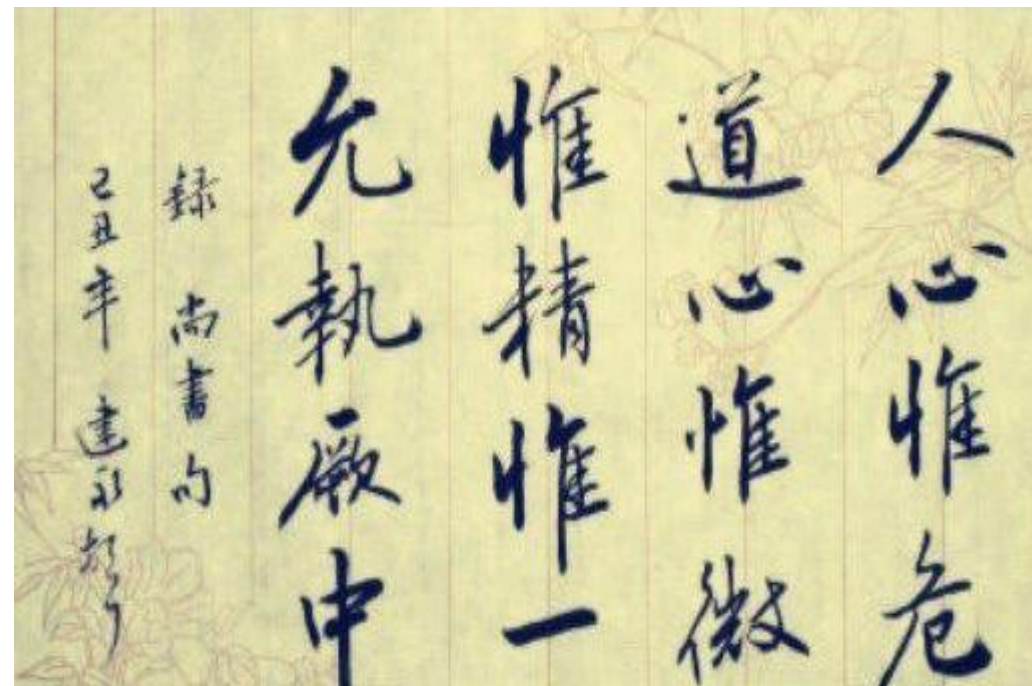 人心惟危
道心惟微
惟精惟一
允執厥中
録尚書句
己丑年建永